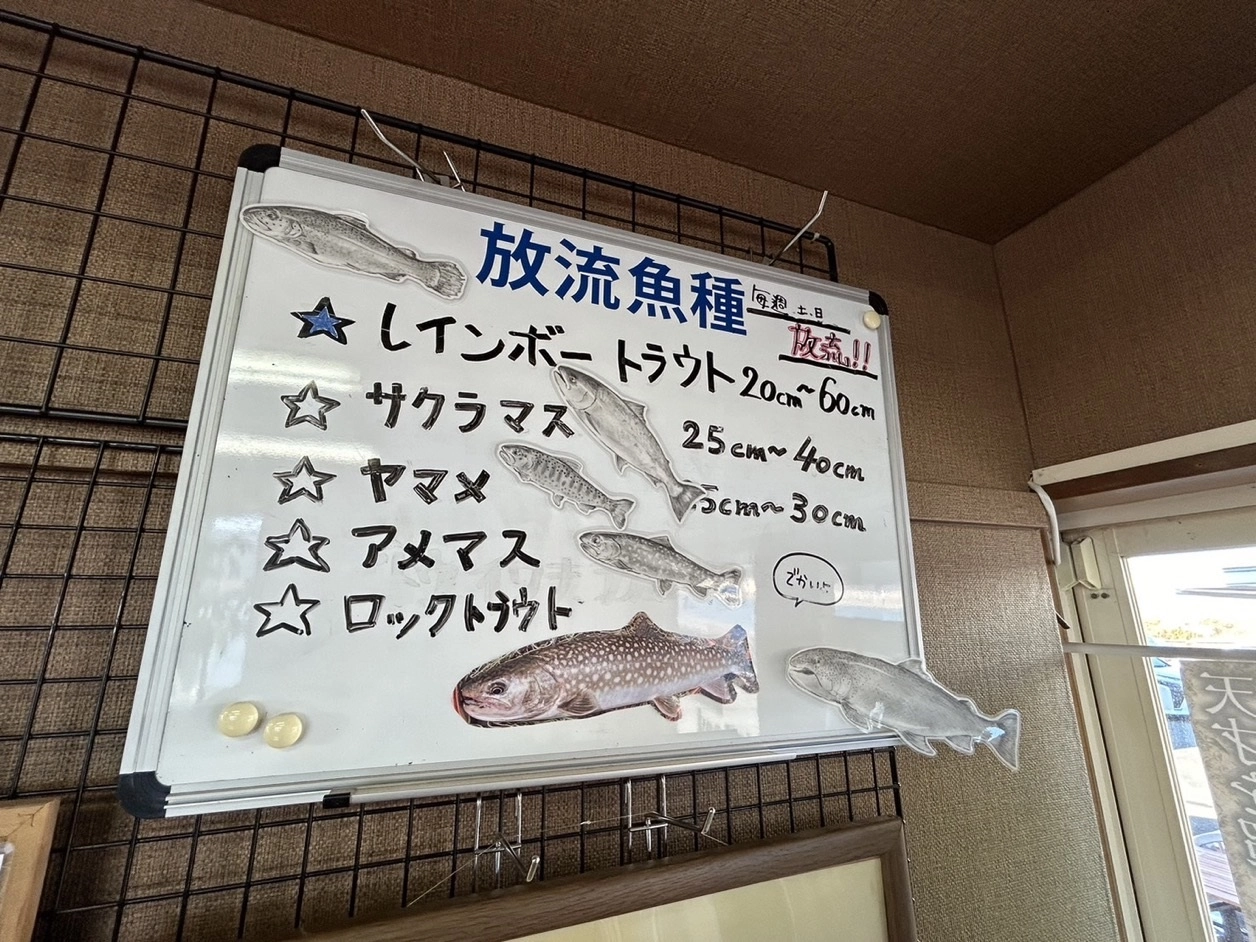 放流魚種
毎週 土.日
放流!!
★レインボートラウト 20cm~60cm
☆サクラマス 25cm~40cm
☆ヤマメ 5cm~30cm
☆アメマス
☆ロックトラウト
でかい!!